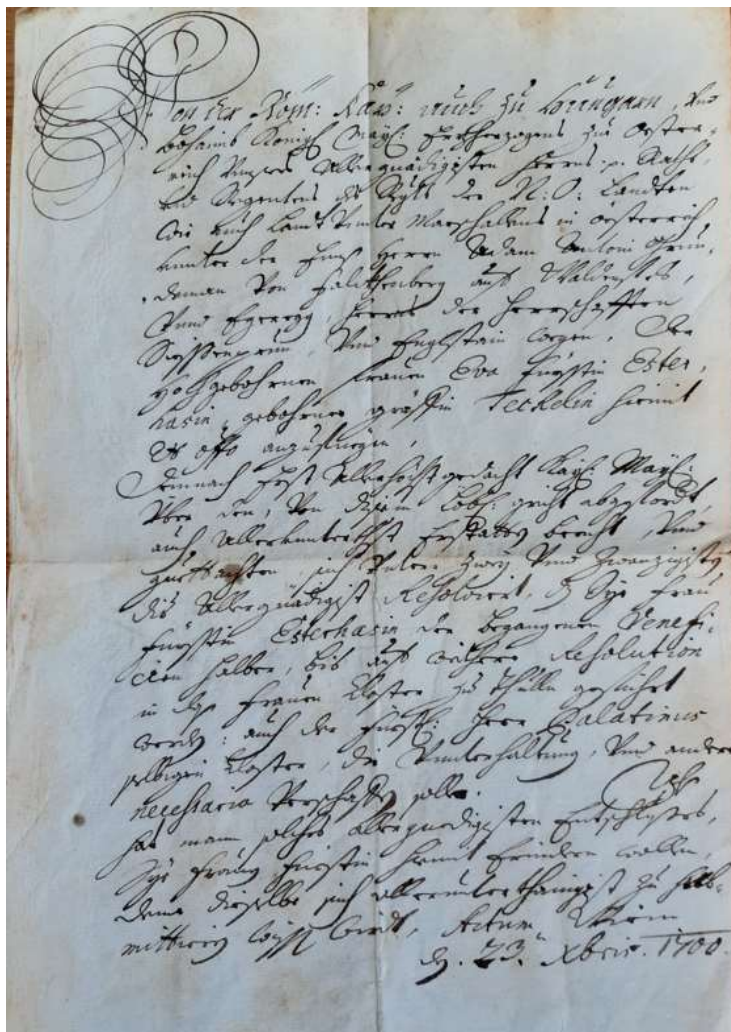 Von der Röm: Kay: auch zu Hungarn, und
Böhaimb Königl: Mayl: Erzherzogens zu Oester-
reich Unsers Allergnädigisten Herrns p. Raths,
und Regentens des Regts der N: O: Landten
wie auch Landt Unter Marschallens in Oesterreich
unter der Enns Herrn Adam Antoni Grun-
deman von Falckhenberg auf Waldenfels,
Unnd Egeregg, Herrns der Herrschafften
Streittenprun, Unnd Englstain wegen, Der
Hochgebohrnen Frauen Eva Fürstin Ester-
hasin, gebohrner gräffin Teckelin hiemit
Ex offo anzufuegen,
Demnach Erst Allerhöchstgedacht Kayl: Mayl:
Über den, von disem Löbl: gricht abgefordt,
auch allerunterthgst Erstatten bericht, Unnd
guettachten, sich unter Zwey Unnd Zwanzigisten
dis Allergnädigist Resolviert, dz Sye Frau
Fürstin Esterhasin der begangenen Venefi-
cien halber, bis auf weithere Resolution
in dz Frauen Closter zu Thulln geführt
werden: auch der Fürstl: Herr Palatinus
selbigem Closter, die Unterhaltung, Unnd andere
necessaria Verschaffen solle.
hat mann solches allergnedigisten Entschlusses,
Sye Frauen Fürstin hiemit Erindern wollen,
deme dieselbe sich allerunterthänigist zu sub-
mittiern wissen wirdt, Actum Wienn
den. 23. Xbris. 1700.